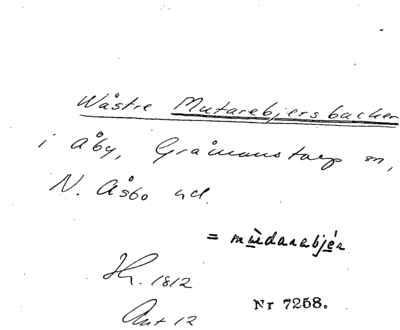 Wästre Mutarebjersbacken
i Åby, Gråmanstorp sn,
N. Åsbo hd.
= mùdarabjér
1812
Akt 12
Nr 7258.